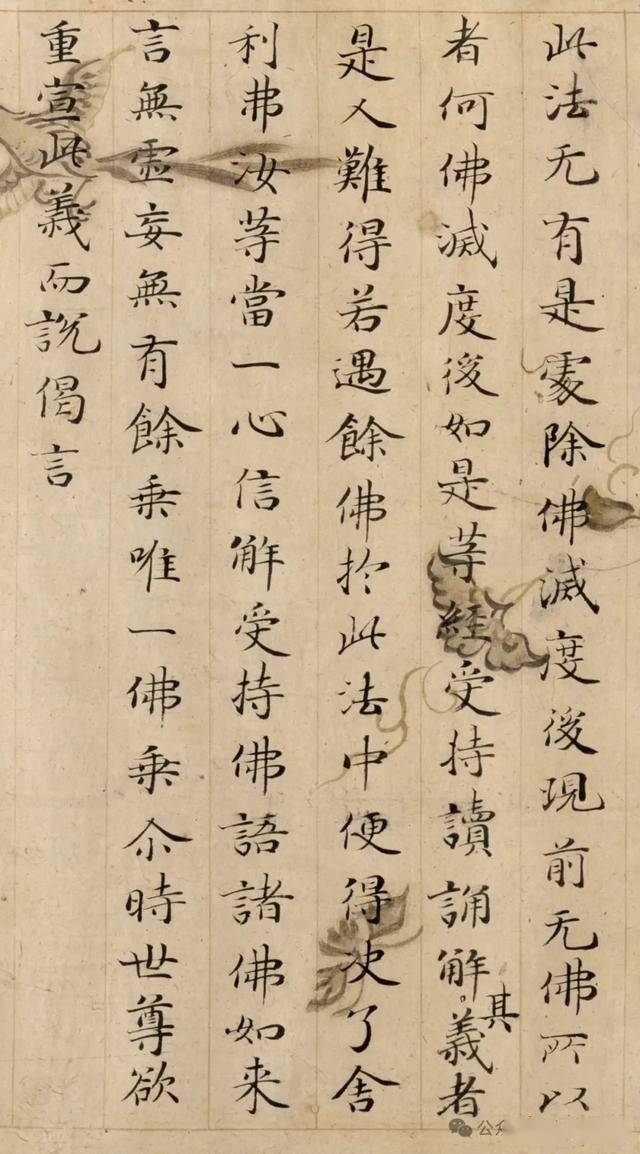 此法无有是處除佛滅度後現前无佛所以
者何佛滅度後如是等經受持讀誦解其義者
是人難得若遇餘佛於此法中便得决了舍
利弗汝等當一心信解受持佛語諸佛如来
言無虛妄無有餘乗唯一佛乗尒時世尊欲
重宣此義而說偈言
公众